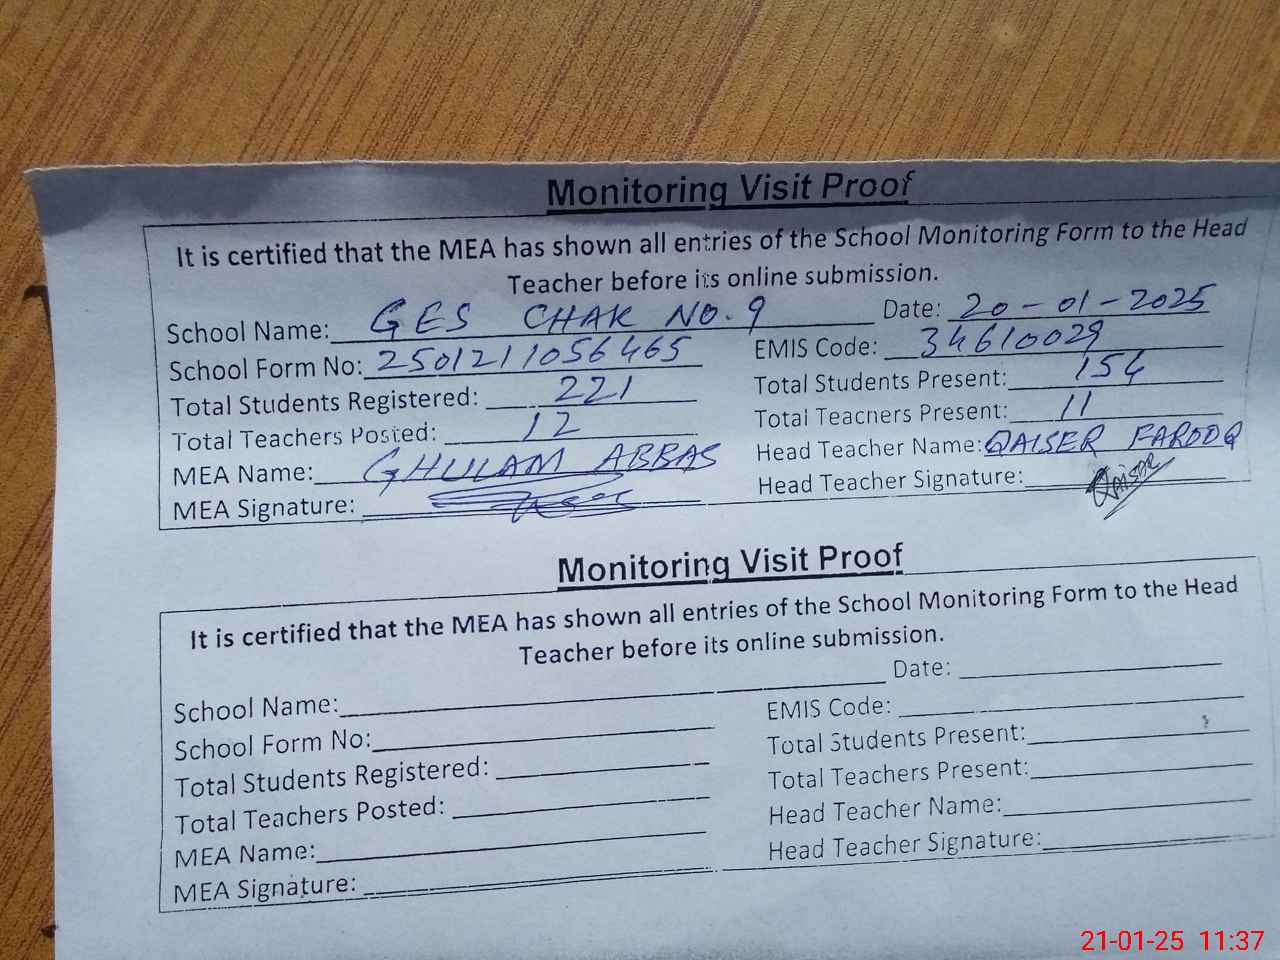 Monitoring Visit Proof
It is certified that the MEA has shown all entries of the School Monitoring Form to the Head
Teacher before its online submission.
School Name: GES CHAK NO. 9 Date: 20-01-2025
School Form No: 2501211056465 EMIS Code: 34610029
Total Students Registered: 221 Total Students Present: 154
Total Teachers Posted: 12 Total Teachers Present: 11
MEA Name: GHULAM ABBAS Head Teacher Name: QAISER FAROOQ
MEA Signature: Head Teacher Signature: Qaiser
Monitoring Visit Proof
It is certified that the MEA has shown all entries of the School Monitoring Form to the Head
Teacher before its online submission.
School Name: Date:
School Form No: EMIS Code:
Total Students Registered: Total Students Present:
Total Teachers Posted: Total Teachers Present:
MEA Name: Head Teacher Name:
MEA Signature: Head Teacher Signature:
21-01-25 11:37